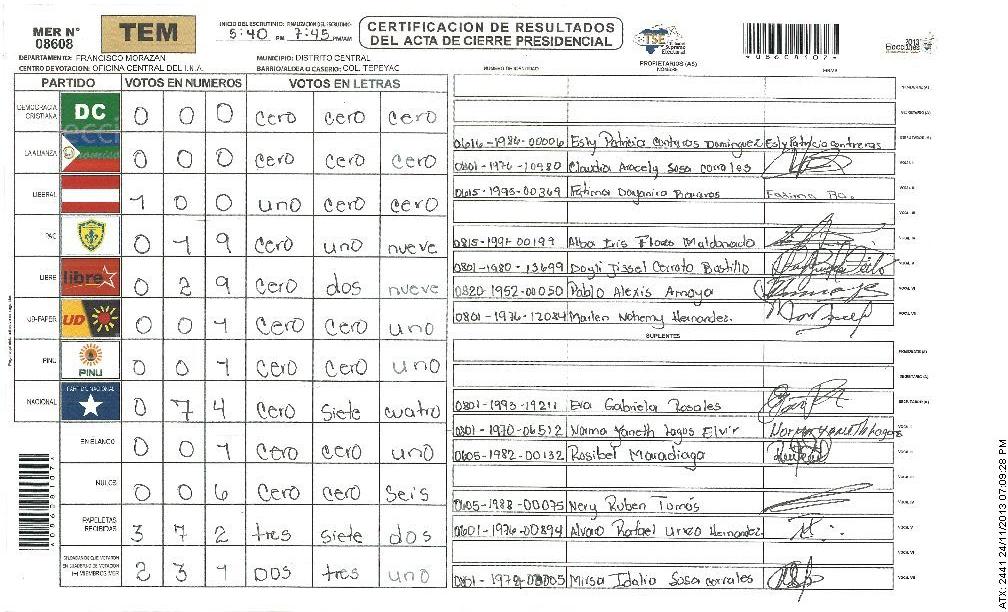 MER N° 08608
TEM
INICIO DEL ESCRUTINIO: FINALIZACION DEL ESCRUTINIO:
5:40 PM 7:45 PM/AM
CERTIFICACION DE RESULTADOS
DEL ACTA DE CIERRE PRESIDENCIAL
TSE
Tribunal Supremo Electoral
*08608107*
2013
Elecciones
DEPARTAMENTO: FRANCISCO MORAZAN MUNICIPIO: DISTRITO CENTRAL
CENTRO DE VOTACION: OFICINA CENTRAL DEL I.N.A. BARRIO/ALDEA O CASERIO: COL. TEPEYAC
PARTIDO VOTOS EN NUMEROS VOTOS EN LETRAS
DEMOCRACIA CRISTIANA DC 0 0 0 cero cero cero
LA ALIANZA 0 0 0 cero cero cero
LIBERAL 1 0 0 uno cero cero
PAC 0 1 9 cero uno nueve
LIBRE libre 0 2 9 cero dos nueve
UD-FAPER UD 0 0 1 cero cero uno
PINU PINU 0 0 1 cero cero uno
NACIONAL PARTIDO NACIONAL 0 7 4 cero siete cuatro
EN BLANCO 0 0 1 cero cero uno
NULOS 0 0 6 cero cero seis
PAPELETAS RECIBIDAS 3 7 2 tres siete dos
CIUDADANOS QUE VOTARON EN CUADERNO DE VOTACION (+) MIEMBROS MER 2 3 1 Dos tres uno
PROPIETARIOS (AS)
NUMERO DE IDENTIDAD NOMBRE FIRMA
PRESIDENTE (A)
SECRETARIO (A)
Esly Patricia Contreras Dominguez Esly Patricia Contreras ESCRUTADOR (A)
0801-1976-10980 Claudia Aracely Sosa corrales VOCAL I
0615-1995-00369 Fatima VOCAL II
VOCAL III
0815-1997-00199 Alba Iris Flores Maldonado VOCAL IV
0801-1980-13699 Dayli Jissel Cerrato Bastillo VOCAL V
0820-1952-00050 Pablo Alexis Amaya VOCAL VI
0801-1976-12084 Marlen Nohemy Hernandez. VOCAL VII
SUPLENTES
PRESIDENTE (A)
SECRETARIO (A)
0801-1993-19211 Eva Gabriela Rosales ESCRUTADOR (A)
0801-1970-06512 Norma Yaneth Lagos Elvir VOCAL I
0605-1982-00132 Rosibel Maradiaga VOCAL II
VOCAL III
0605-1988-00075 Nery Ruben Tomás VOCAL IV
0601-1976-00894 Alvaro Rafael Hernandez VOCAL V
VOCAL VI
Mirsa Idalia Sosa corrales VOCAL VII
*08608107*
ATX-2441 24/11/2013 07:09:28 PM